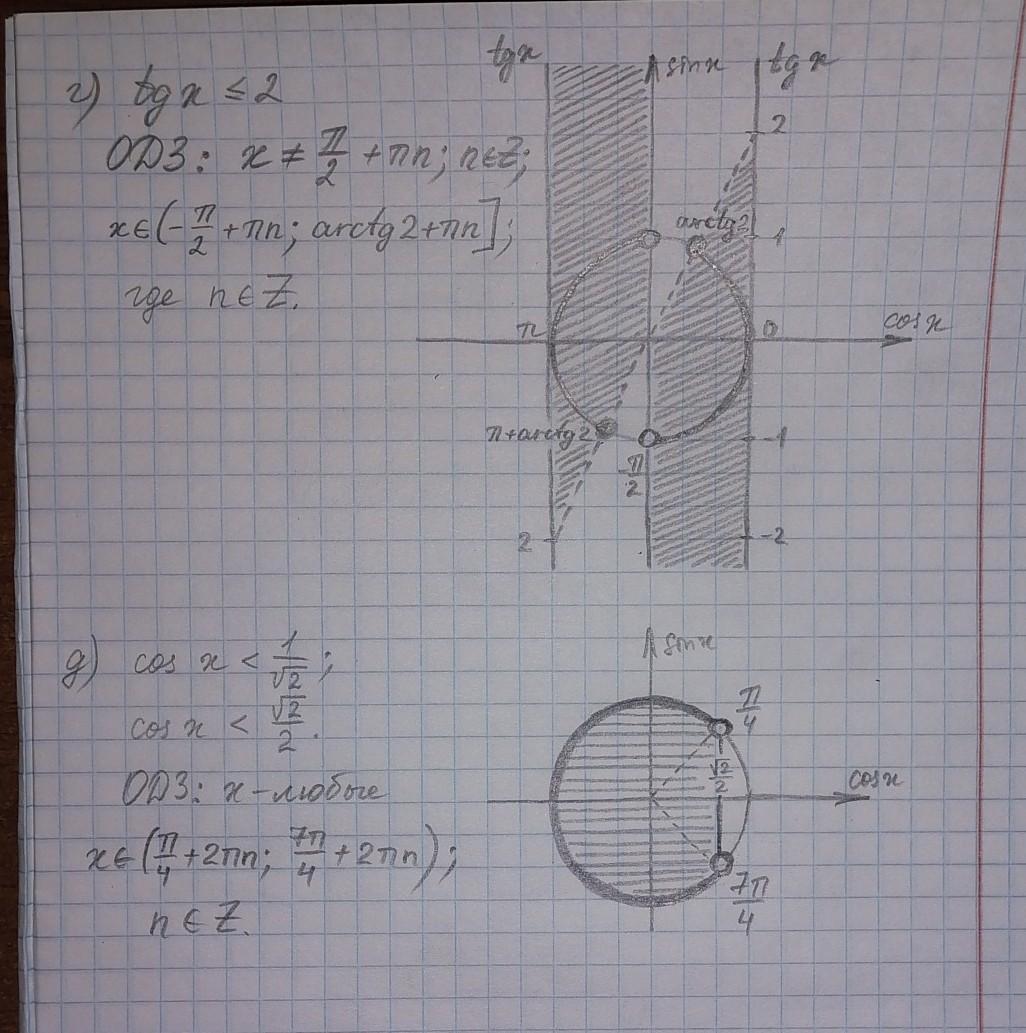 г) tg x ≤ 2
ОДЗ: x ≠ π/2 + πn; n∈Z;
x∈(-π/2 + πn; arctg2+πn];
где n∈Z.
tg x
sin x
tg x
2
arctg2
1
π
0
cos x
π+arctg2
-1
-π/2
2
-2
д) cos x < 1/√2;
cos x < √2/2.
ОДЗ: x-любые
x∈(π/4 +2πn; 7π/4 +2πn);
n∈Z.
sin x
π/4
√2/2
cos x
7π/4